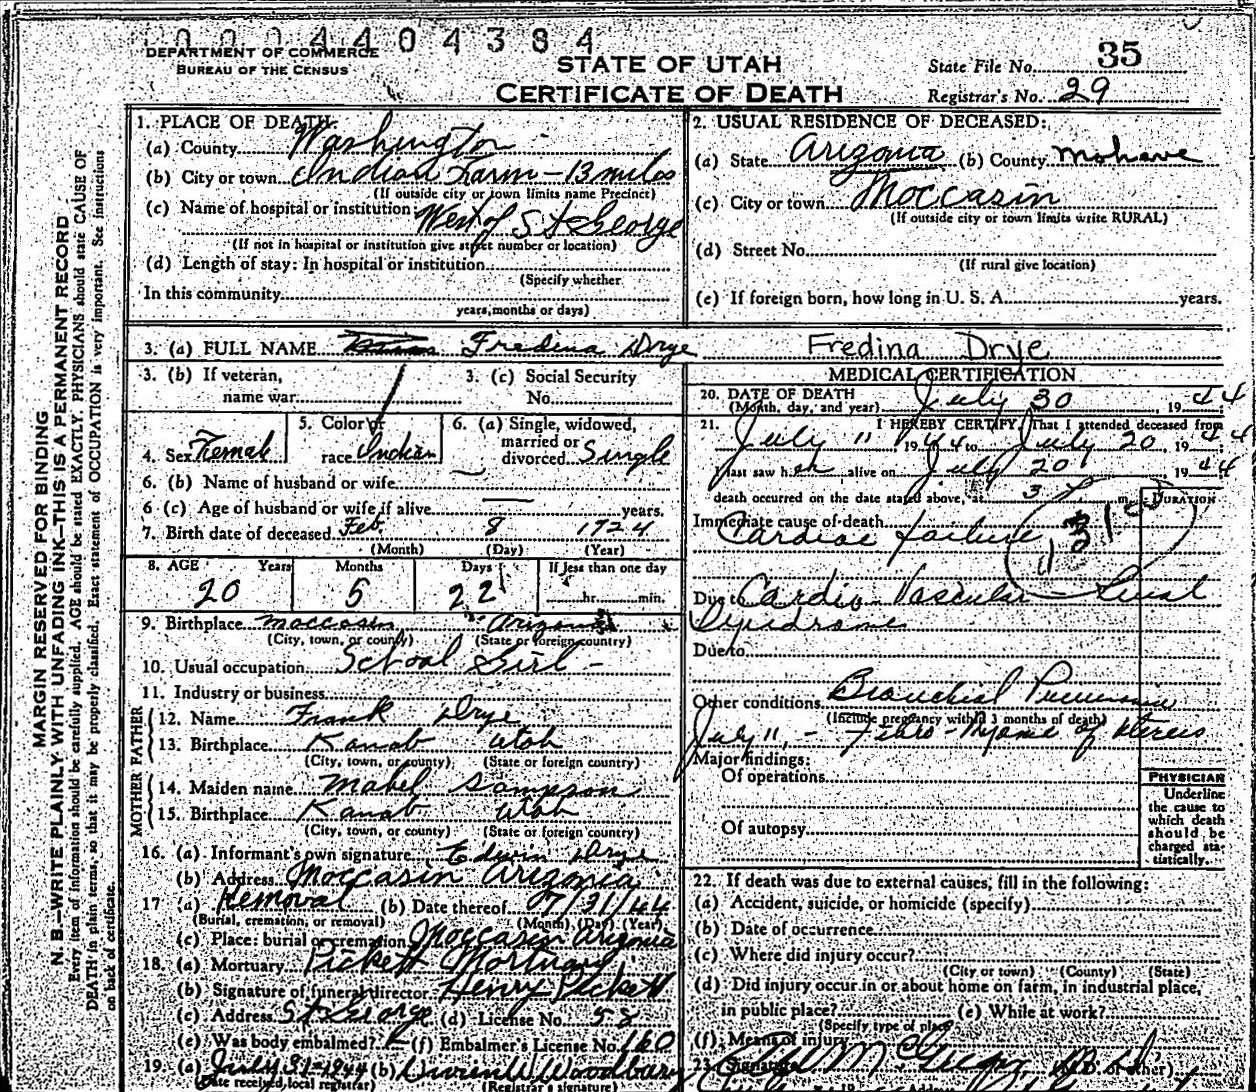 0004404384
DEPARTMENT OF COMMERCE
BUREAU OF THE CENSUS
STATE OF UTAH
CERTIFICATE OF DEATH
State File No. 35
Registrar's No. 29
MARGIN RESERVED FOR BINDING
N. B.—WRITE PLAINLY WITH UNFADING INK—THIS IS A PERMANENT RECORD
Every item of information should be carefully supplied. AGE should be stated EXACTLY. PHYSICIANS should state CAUSE OF
DEATH in plain terms, so that it may be properly classified. Exact statement of OCCUPATION is very important. See instructions
on back of certificate.
1. PLACE OF DEATH
(a) County Washington
(b) City or town Indian Farm - 13 miles
(If outside city or town limits name Precinct)
(c) Name of hospital or institution: West of St George
(If not in hospital or institution give street number or location)
(d) Length of stay: In hospital or institution
(Specify whether
In this community
years, months or days)
2. USUAL RESIDENCE OF DECEASED:
(a) State Arizona (b) County Mohave
(c) City or town Moccasin
(If outside city or town limits write RURAL)
(d) Street No.
(If rural give location)
(e) If foreign born, how long in U. S. A. years.
3. (a) FULL NAME Fredina Drye Fredina Drye
3. (b) If veteran,
name war
3. (c) Social Security
No.
4. Sex Female
5. Color or
race Indian
6. (a) Single, widowed,
married or
divorced Single
6. (b) Name of husband or wife
6 (c) Age of husband or wife if alive years.
7. Birth date of deceased Feb 8 1924
(Month) (Day) (Year)
8. AGE Years Months Days If less than one day
20 5 22 hr. min.
9. Birthplace Moccasin Arizona
(City, town, or county) (State or foreign country)
10. Usual occupation School Girl -
11. Industry or business
FATHER
12. Name Frank Drye
13. Birthplace Kanab Utah
(City, town, or county) (State or foreign country)
MOTHER
14. Maiden name Mabel Sampson
15. Birthplace Kanab Utah
(City, town, or county) (State or foreign country)
16. (a) Informant's own signature Edwin Drye
(b) Address Moccasin Arizonia
17 (a) Removal (b) Date thereof 07/31/44
(Burial, cremation, or removal) (Month) (Day) (Year)
(c) Place: burial or cremation Moccasin Arizonia
18. (a) Mortuary Pickett Mortuary
(b) Signature of funeral director Henry Pickett
(c) Address St George (d) License No. 58
(e) Was body embalmed? (f) Embalmer's License No. 160
19. (a) July 31-1944 (b) Woodbury
Date received local registrar (Registrar's signature)
MEDICAL CERTIFICATION
20. DATE OF DEATH
(Month, day, and year) July 30, 1944
21. I HEREBY CERTIFY, That I attended deceased from
July 11, 1944 to July 20, 1944
I last saw her alive on July 20 1944
death occurred on the date stated above, at 3 P. m.
DURATION
Immediate cause of death
Cardiac failure
131
Due to Cardio Vascular - Renal
Syndrome
Due to
Other conditions Bronchial Pneumonia
(Include pregnancy within 3 months of death)
July 11, - Fibro-Myoma of Uterus
Major findings:
Of operations
Of autopsy
PHYSICIAN
Underline
the cause to
which death
should be
charged sta-
tistically.
22. If death was due to external causes, fill in the following:
(a) Accident, suicide, or homicide (specify)
(b) Date of occurrence
(c) Where did injury occur?
(City or town) (County) (State)
(d) Did injury occur in or about home on farm, in industrial place,
in public place? (e) While at work?
(Specify type of place)
(f) Means of injury
23. Signature